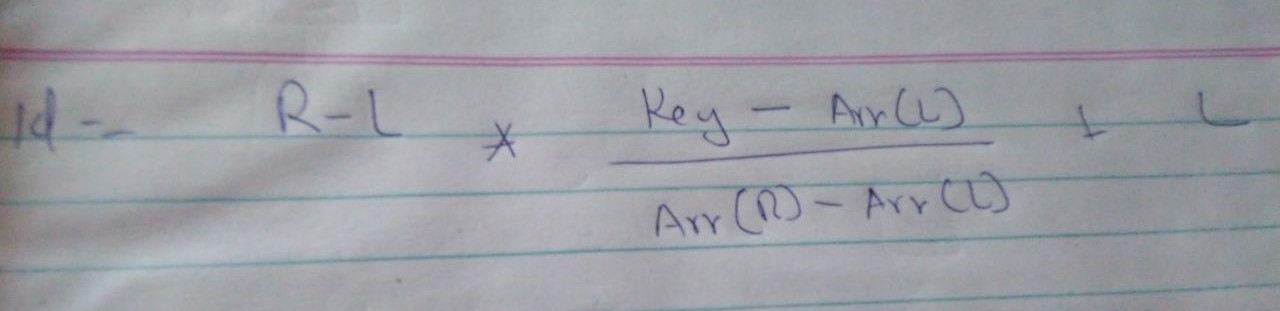 Id = R-L * Key - Arr(L) + L
Arr(R) - Arr(L)